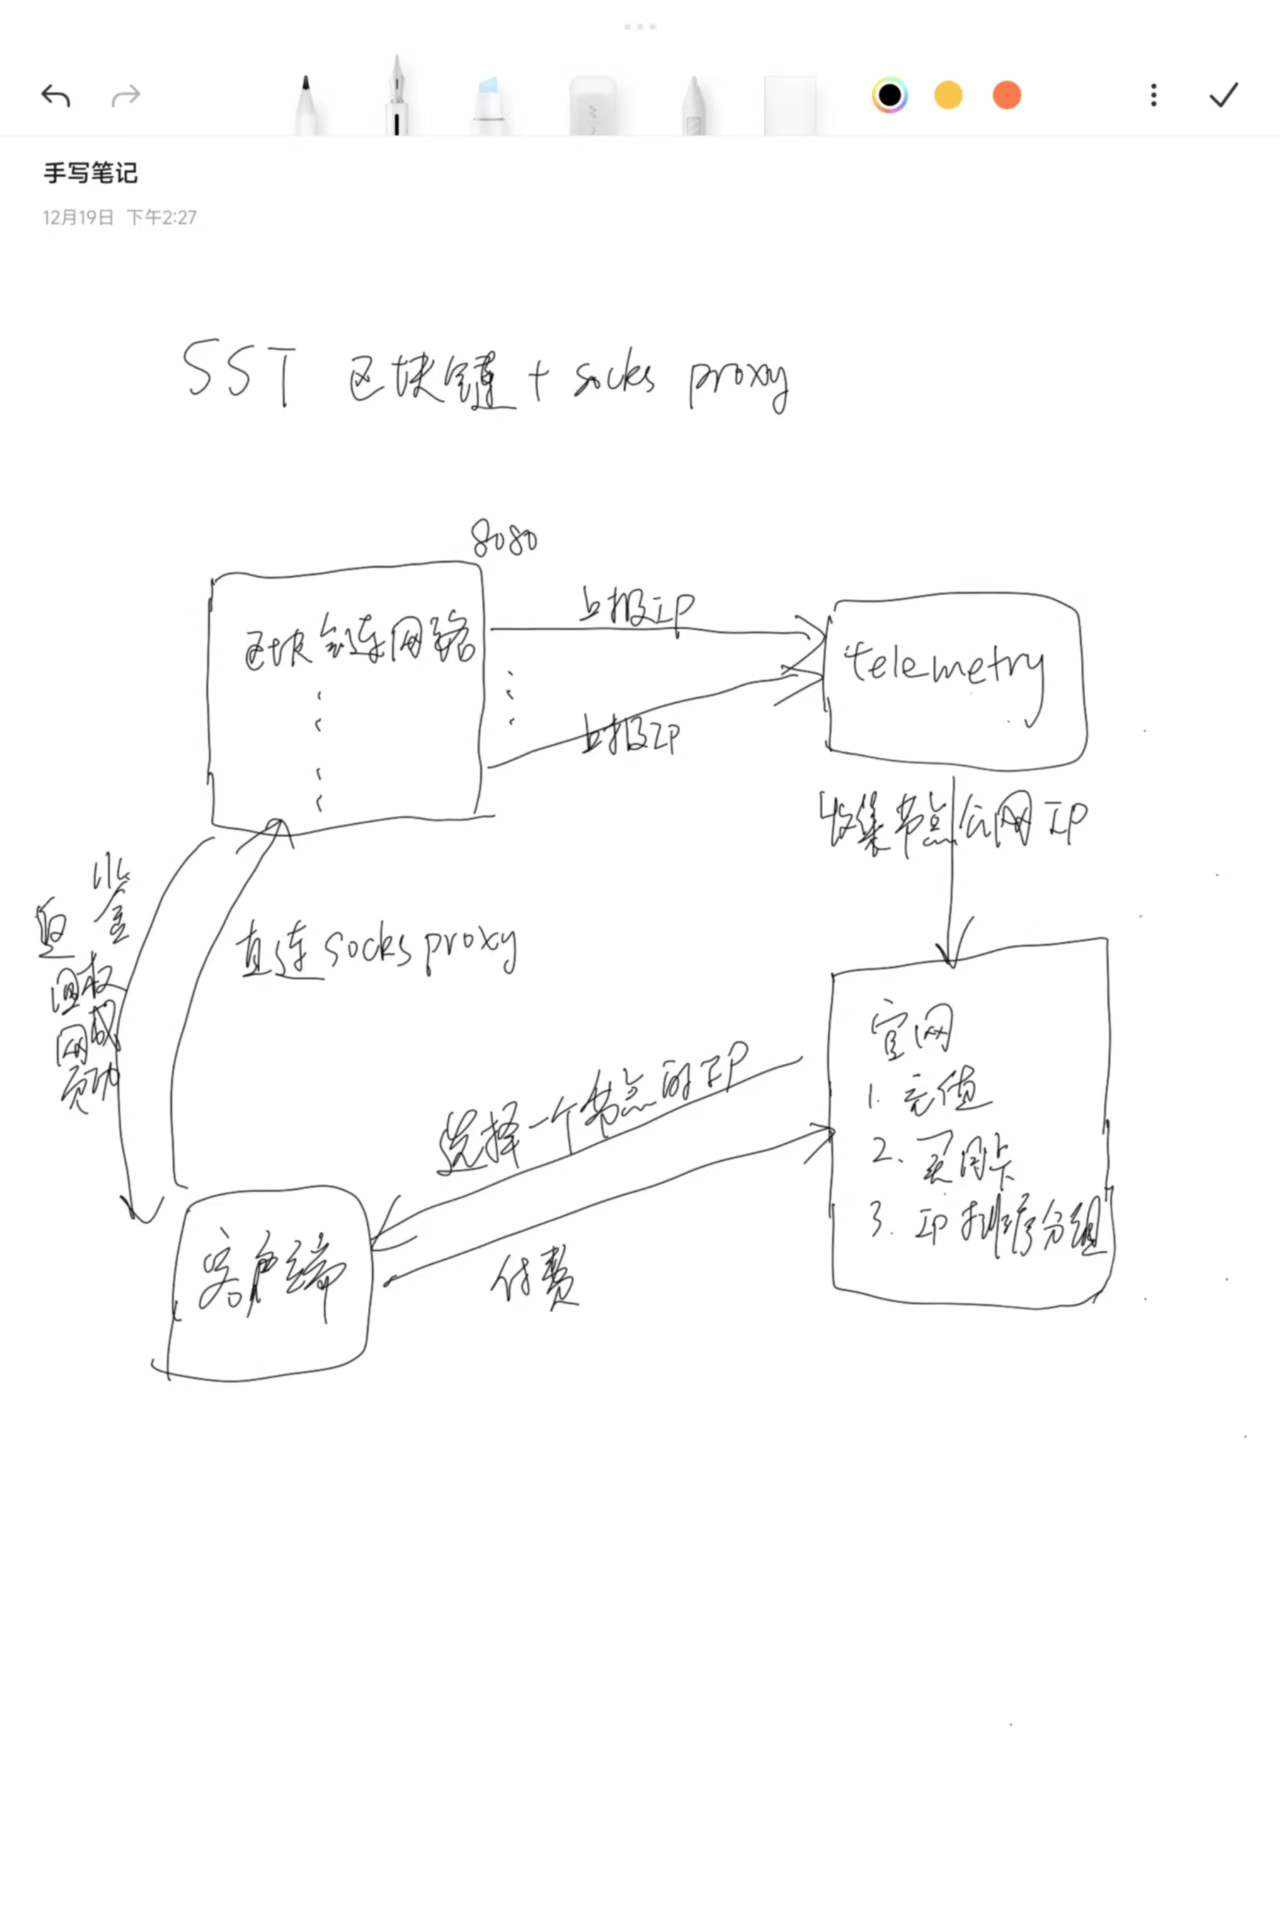 手写笔记
12月19日 下午2:27
SST 区块链 + socks proxy
8080
区块链网络
上报IP
上报IP
telemetry
收集节点公网IP
鉴权成功
返回网页
直连 socks proxy
官网
1. 充值
2. 买周卡
3. IP排序分组
选择一个节点的IP
付费
客户端